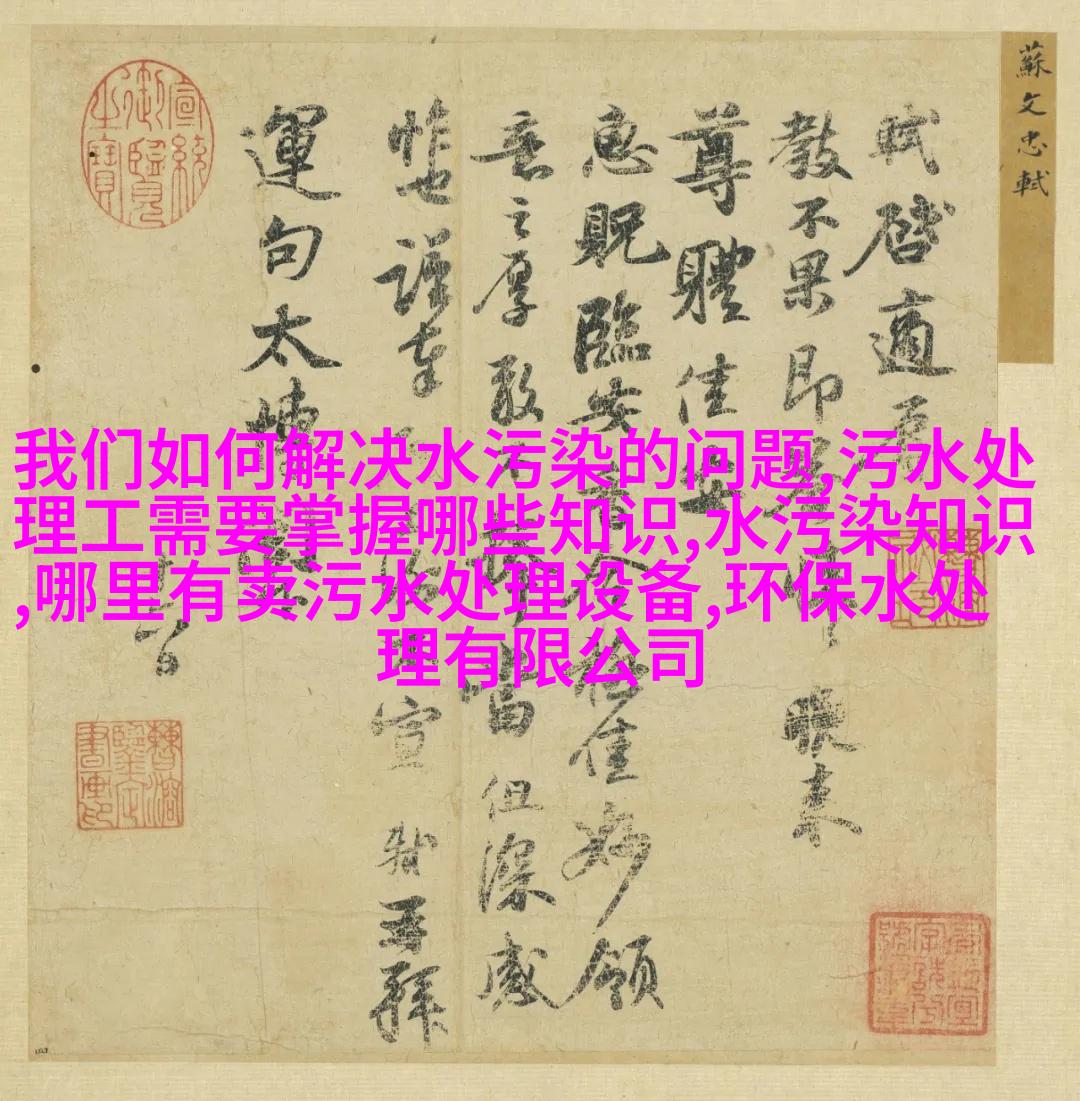 蘇文忠軾
軾啓適
教不果即 晚來
尊體佳安
惠貺臨安 合極佳妙領
意之厚敢 當但深感
怍也謹奉 宣 軾再拜
運句太博
宣統御覽之寶
我们如何解决水污染的问题,污水处
理工需要掌握哪些知识,水污染知识
,哪里有卖污水处理设备,环保水处
理有限公司